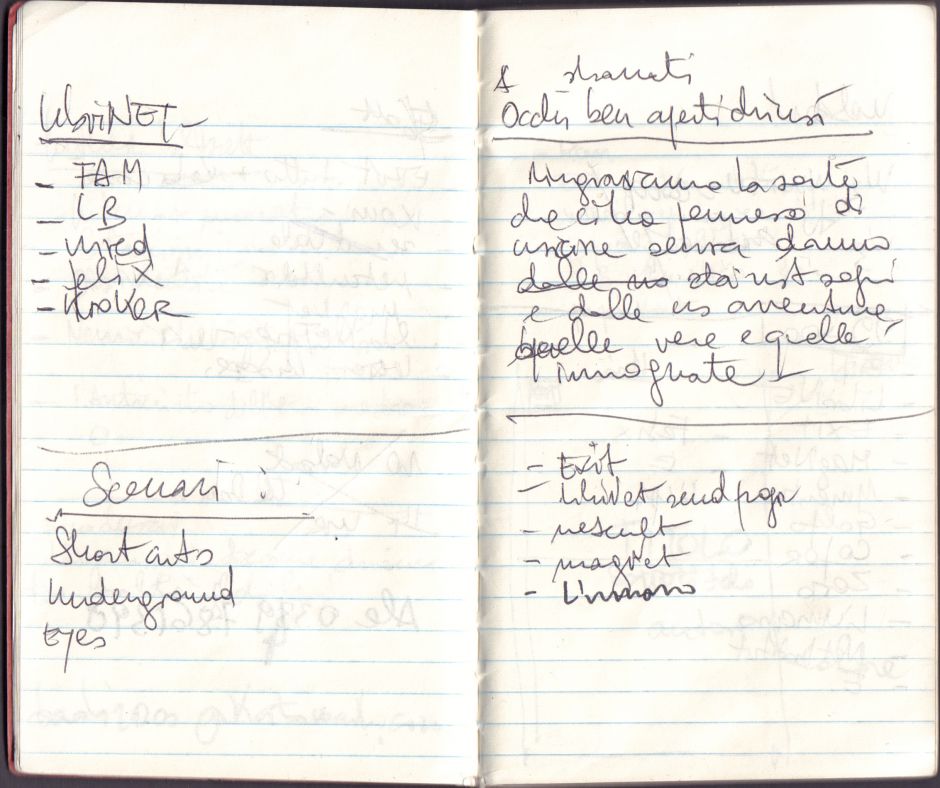 LibriNET
- FAM
- LB
- Wired
- Felix
- KROKER
Scenari :
Short cuts
Underground
Eyes
& sbarrati
Occhi ben aperti chiusi
Ringraziamo la sorte
che ci ha permesso di
uscire senza danno
dalle no dai ns sogni
e dalle ns avventure
quelle vere e quelle
immaginate
- Exit
- LibriNet send page
- nescult
- magnet
- L'umano